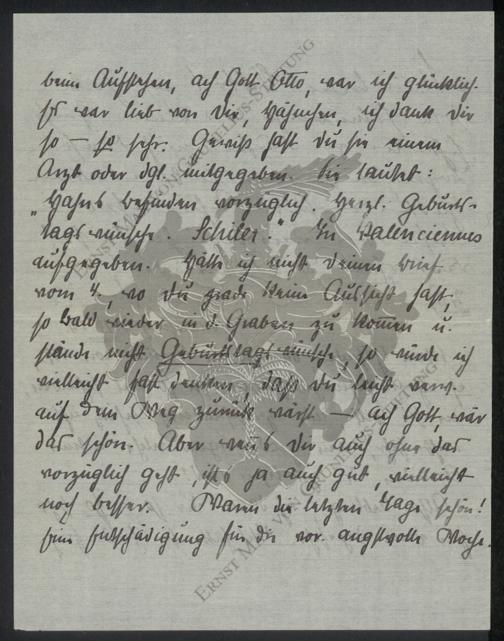 beim Aufstehen, ach Gott Otto, war ich glücklich.
Es war lieb von Dir, Hähnchen, ich dank Dir
so – so sehr. Gewiß hast Du sie einem
Arzt oder dgl. mitgegeben. Sie lautet:
„Hahns befinden vorzüglich. Herzl. Geburts-
tagswünsche. Schiler." In Valenciennes
aufgegeben. Hätte ich nicht Deinen Brief
vom 4., wo Du grade keine Aussicht hast,
so bald wieder in d. Graben zu kommen u.
stände nicht Geburtstagswünsche, so würde ich
vielleicht fast denken, daß Du leicht verw.
auf dem Weg zurück wärst – ach Gott, wär
das schön. Aber wenns Dir auch ohne das
vorzüglich geht, ists ja auch gut, vielleicht
noch besser. Waren die letzten Tage schön!
Eine Entschädigung für die vor. angstvolle Woche.
ERNST MAX VON GRUNELIUS-STIFTUNG
ERNST MAX VON GRUNELIUS-STIFTUNG